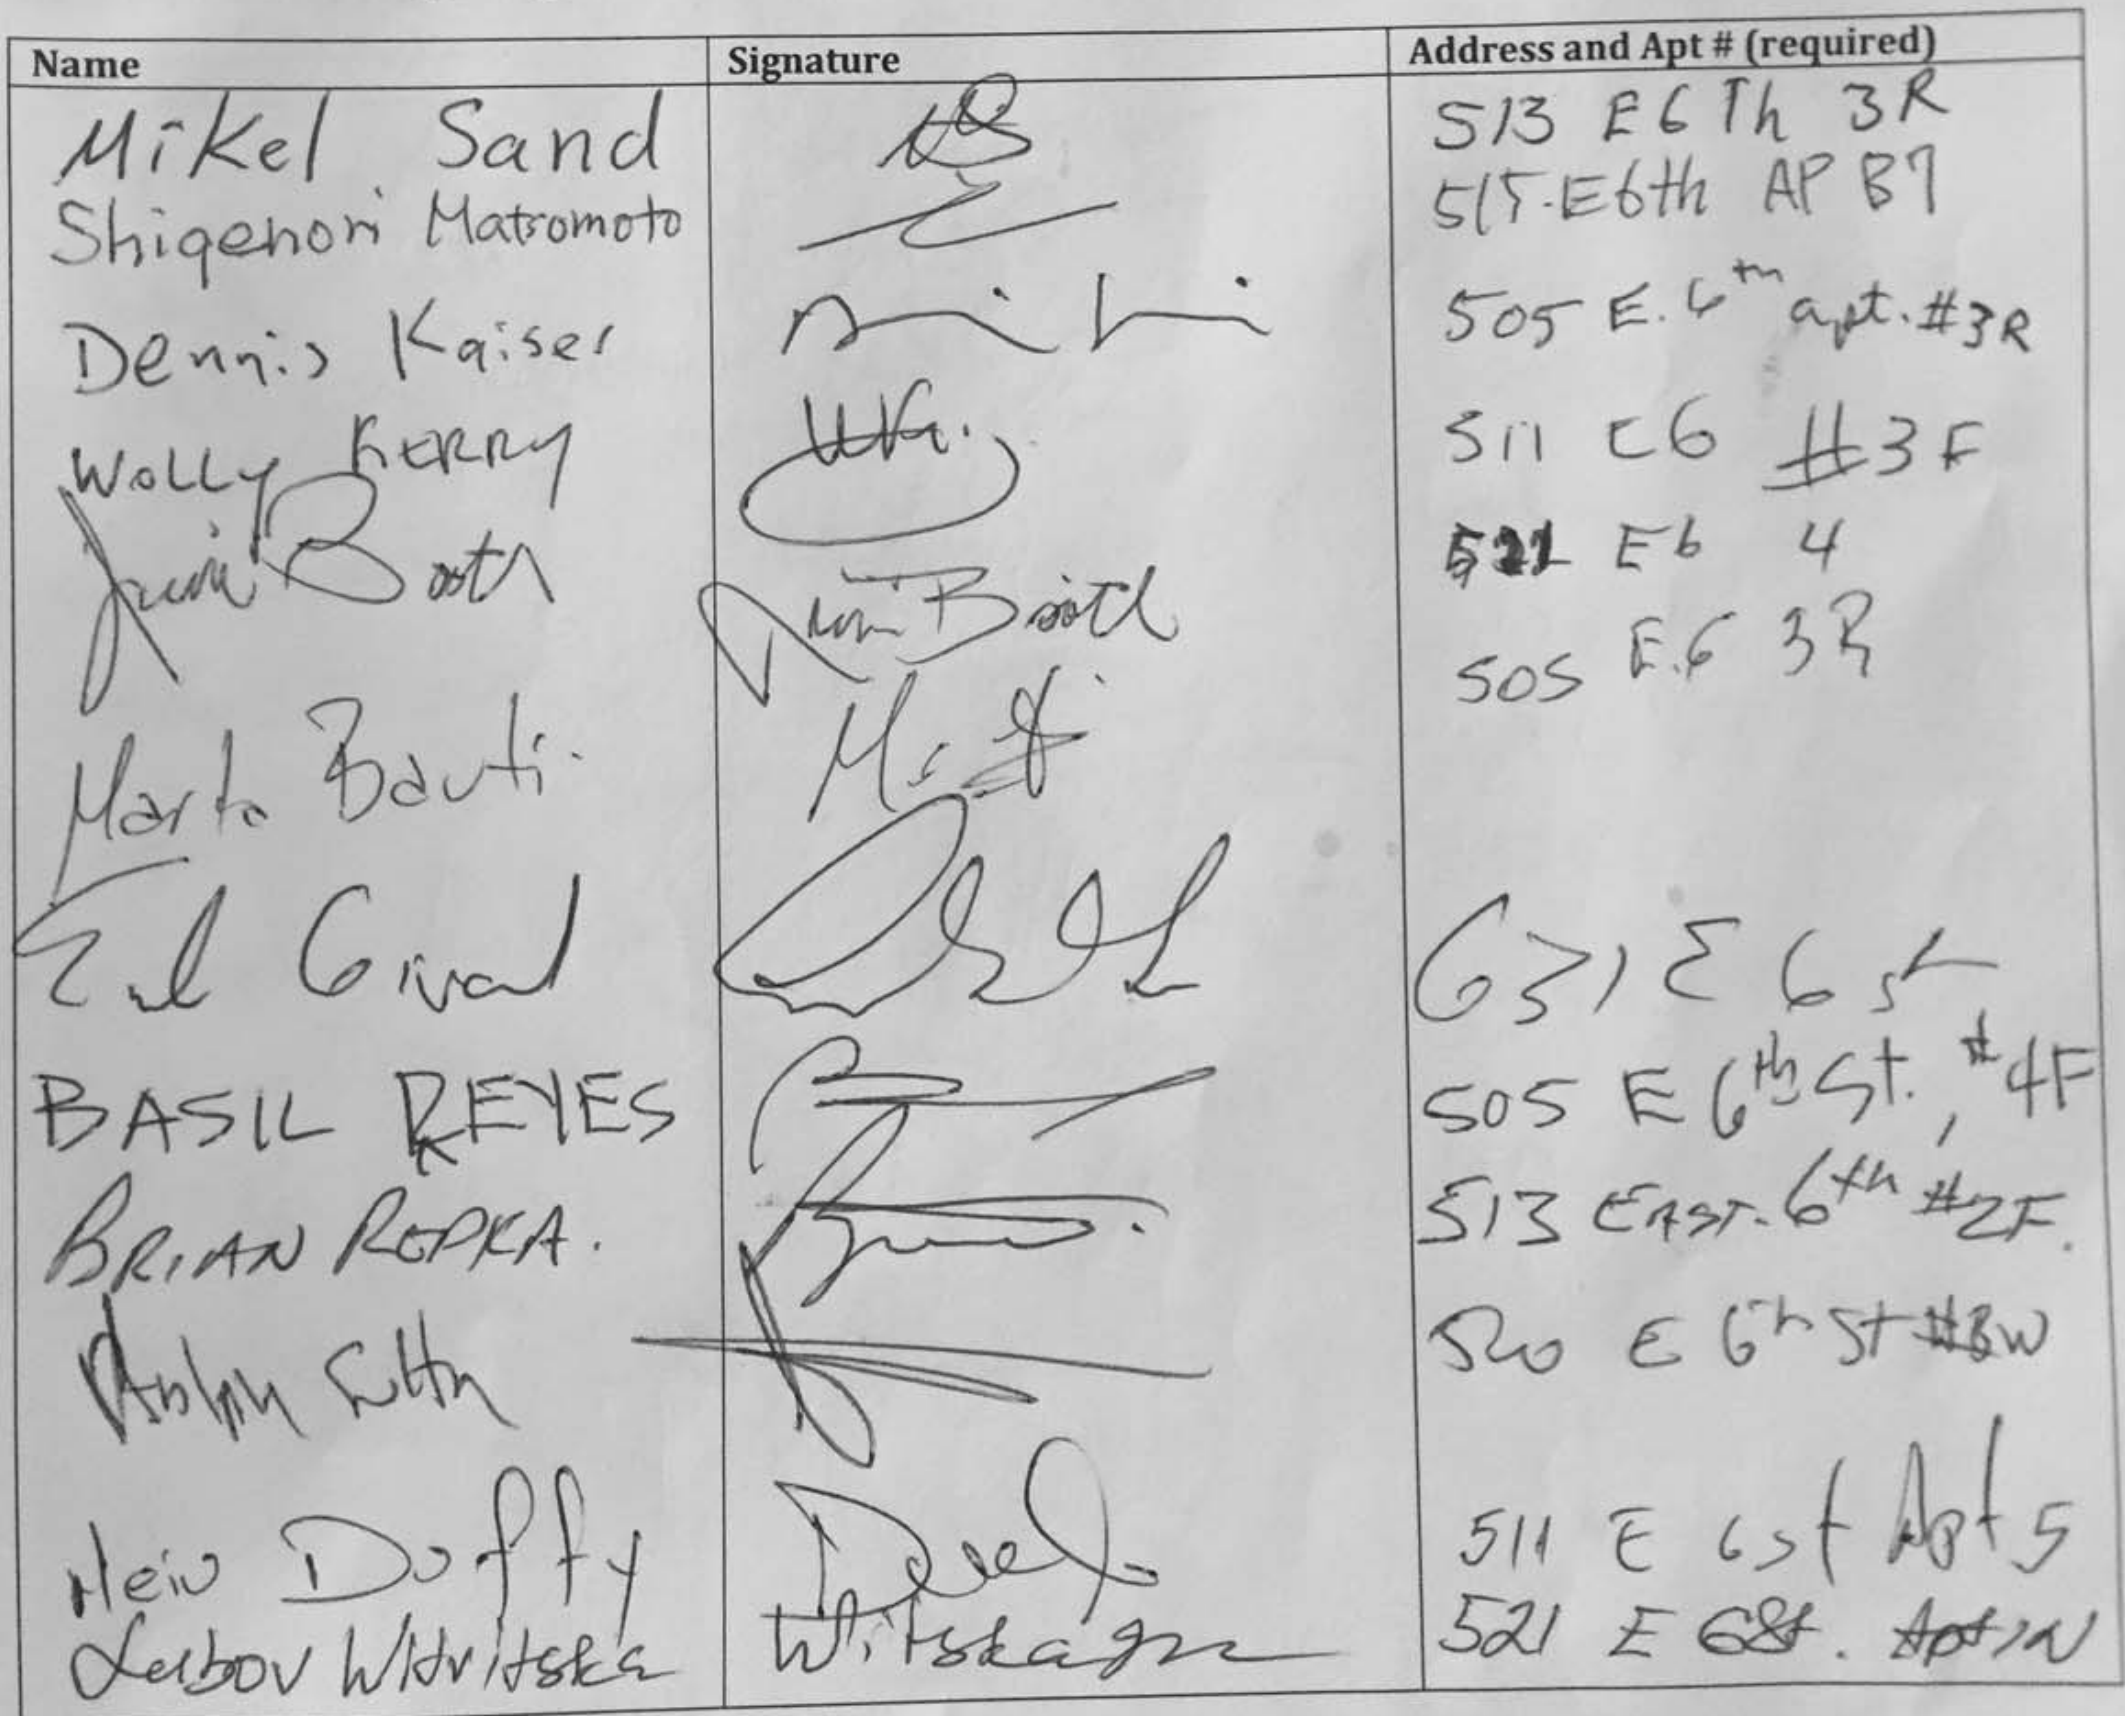 Name Signature Address and Apt # (required)
Mikel Sand 513 E 6 Th 3R
Shigenori Matsomoto 515-E6th AP B7
Dennis Kaiser 505 E. 6th apt. #3R
WOLLY KERRY WK. 511 E6 #3F
Booth Booth 521 E6 4
Marta Bauti 505 E.6 3R
631 E 6 st
BASIL REYES 505 E 6th St., #4F
BRIAN REPKA. 513 EAST. 6th #2F.
520 E 6th St #3W
Duffy 511 E 6 st Apt 5
Lubov Witvitska Witska 521 E 6 St. Apt 1N